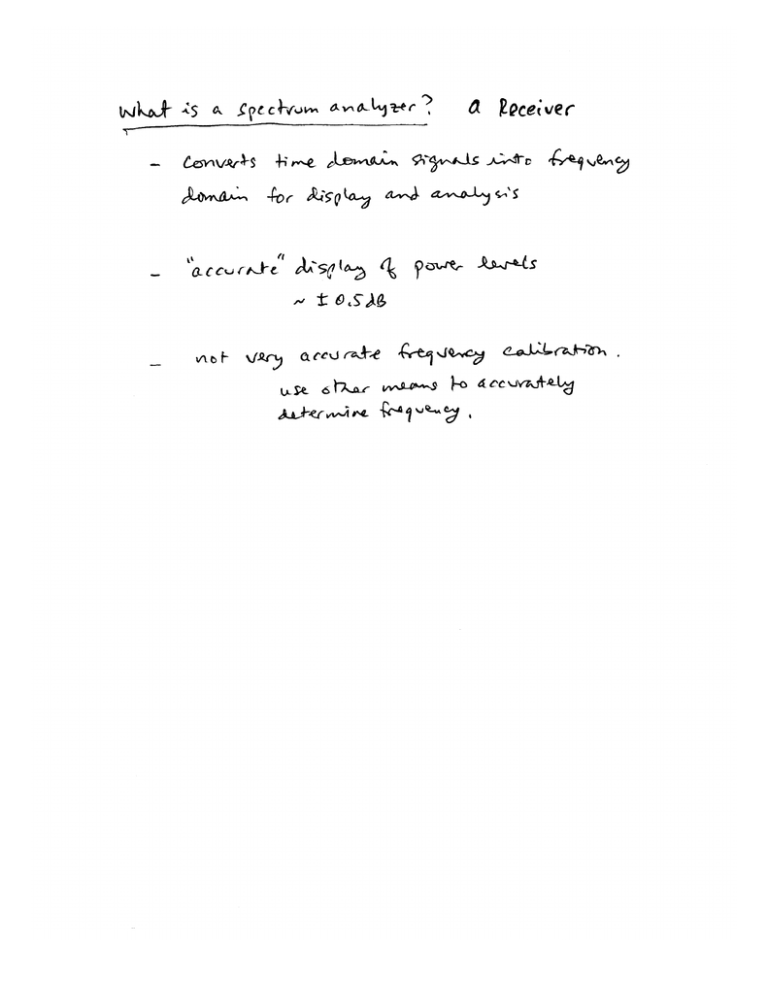 What is a spectrum analyzer? a Receiver
- converts time domain signals into frequency
domain for display and analysis
- "accurate" display of power levels
~ ± 0.5 dB
- not very accurate frequency calibration.
use other means to accurately
determine frequency.